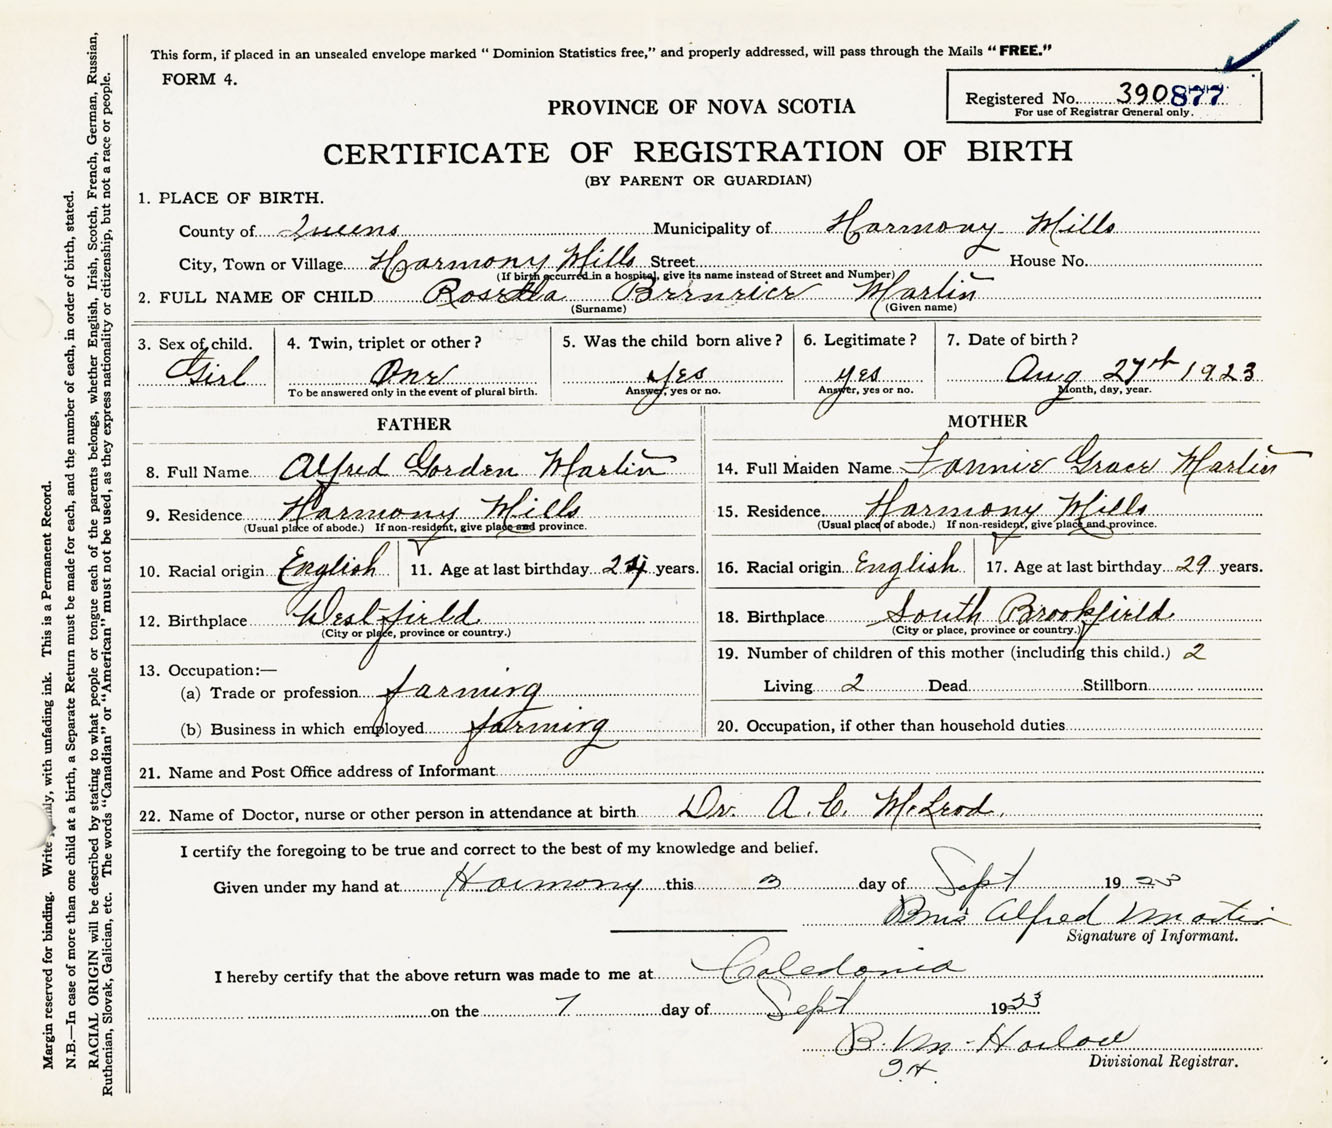 This form, if placed in an unsealed envelope marked "Dominion Statistics free," and properly addressed, will pass through the Mails "FREE."
FORM 4.
Registered No. 390877
For use of Registrar General only.
PROVINCE OF NOVA SCOTIA
CERTIFICATE OF REGISTRATION OF BIRTH
(BY PARENT OR GUARDIAN)
1. PLACE OF BIRTH.
County of Queens Municipality of Harmony Mills
City, Town or Village Harmony Mills Street House No.
(If birth occurred in a hospital, give its name instead of Street and Number)
2. FULL NAME OF CHILD Bernnier Martin
(Surname) (Given name)
3. Sex of child. 4. Twin, triplet or other? 5. Was the child born alive? 6. Legitimate? 7. Date of birth?
Girl One Yes yes Aug 27th 1923
To be answered only in the event of plural birth. Answer, yes or no. Answer, yes or no. Month, day, year.
FATHER MOTHER
8. Full Name Alfred Gorden Martin 14. Full Maiden Name Fannie Grace Martin
9. Residence Harmony Mills 15. Residence Harmony Mills
(Usual place of abode.) If non-resident, give place and province. (Usual place of abode.) If non-resident, give place and province.
10. Racial origin English 11. Age at last birthday 24 years. 16. Racial origin English 17. Age at last birthday 29 years.
12. Birthplace Westfield 18. Birthplace South Brookfield
(City or place, province or country.) (City or place, province or country.)
13. Occupation:— 19. Number of children of this mother (including this child.) 2
(a) Trade or profession farming Living 2 Dead Stillborn
(b) Business in which employed farming 20. Occupation, if other than household duties
21. Name and Post Office address of Informant
22. Name of Doctor, nurse or other person in attendance at birth Dr. A. C. McLeod.
I certify the foregoing to be true and correct to the best of my knowledge and belief.
Given under my hand at Harmony this 3 day of Sept 1923
Alfred Martin
Signature of Informant.
I hereby certify that the above return was made to me at Caledonia
on the 7 day of Sept 1923
B. M. Harlow
Divisional Registrar.
Margin reserved for binding. Write with unfading ink. This is a Permanent Record.
N.B.—In case of more than one child at a birth, a Separate Return must be made for each, and the number of each, in order of birth, stated.
RACIAL ORIGIN will be described by stating to what people or tongue each of the parents belongs, whether English, Irish, Scotch, French, German, Russian,
Ruthenian, Slovak, Galician, etc. The words "Canadian" or "American" must not be used, as they express nationality or citizenship, but not a race or people.